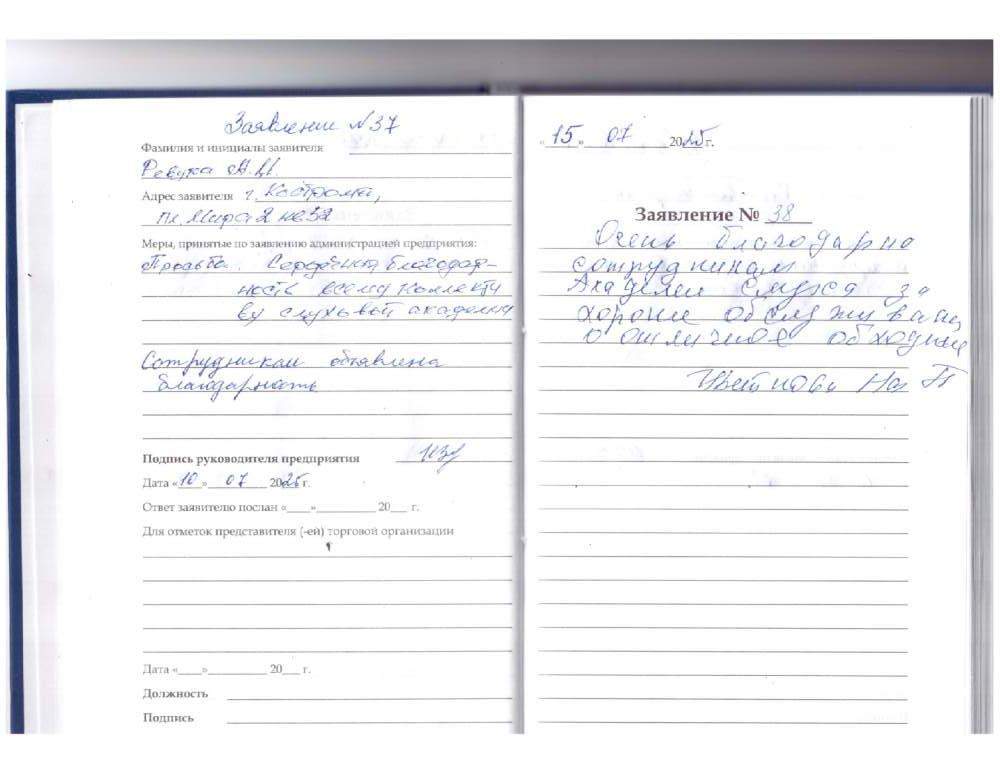 Заявление №37
Фамилия и инициалы заявителя
Ревука
Адрес заявителя г. Кострома,
пл. Мира 2
Меры, принятые по заявлению администрацией предприятия:
Сердечная благодар-
ность всему коллекти
ву слуховой академии
Сотрудникам объявлена
благодарность
Подпись руководителя предприятия
Дата «10» 07 2025г.
Ответ заявителю послан «___»__________ 20___ г.
Для отметок представителя (-ей) торговой организации
Дата «___»__________ 20___ г.
Должность
Подпись
«15» 07 2025г.
Заявление № 38
Очень благодарна
сотрудникам
Академеи слуха за
хороше обслуживание
о отличное обхождение